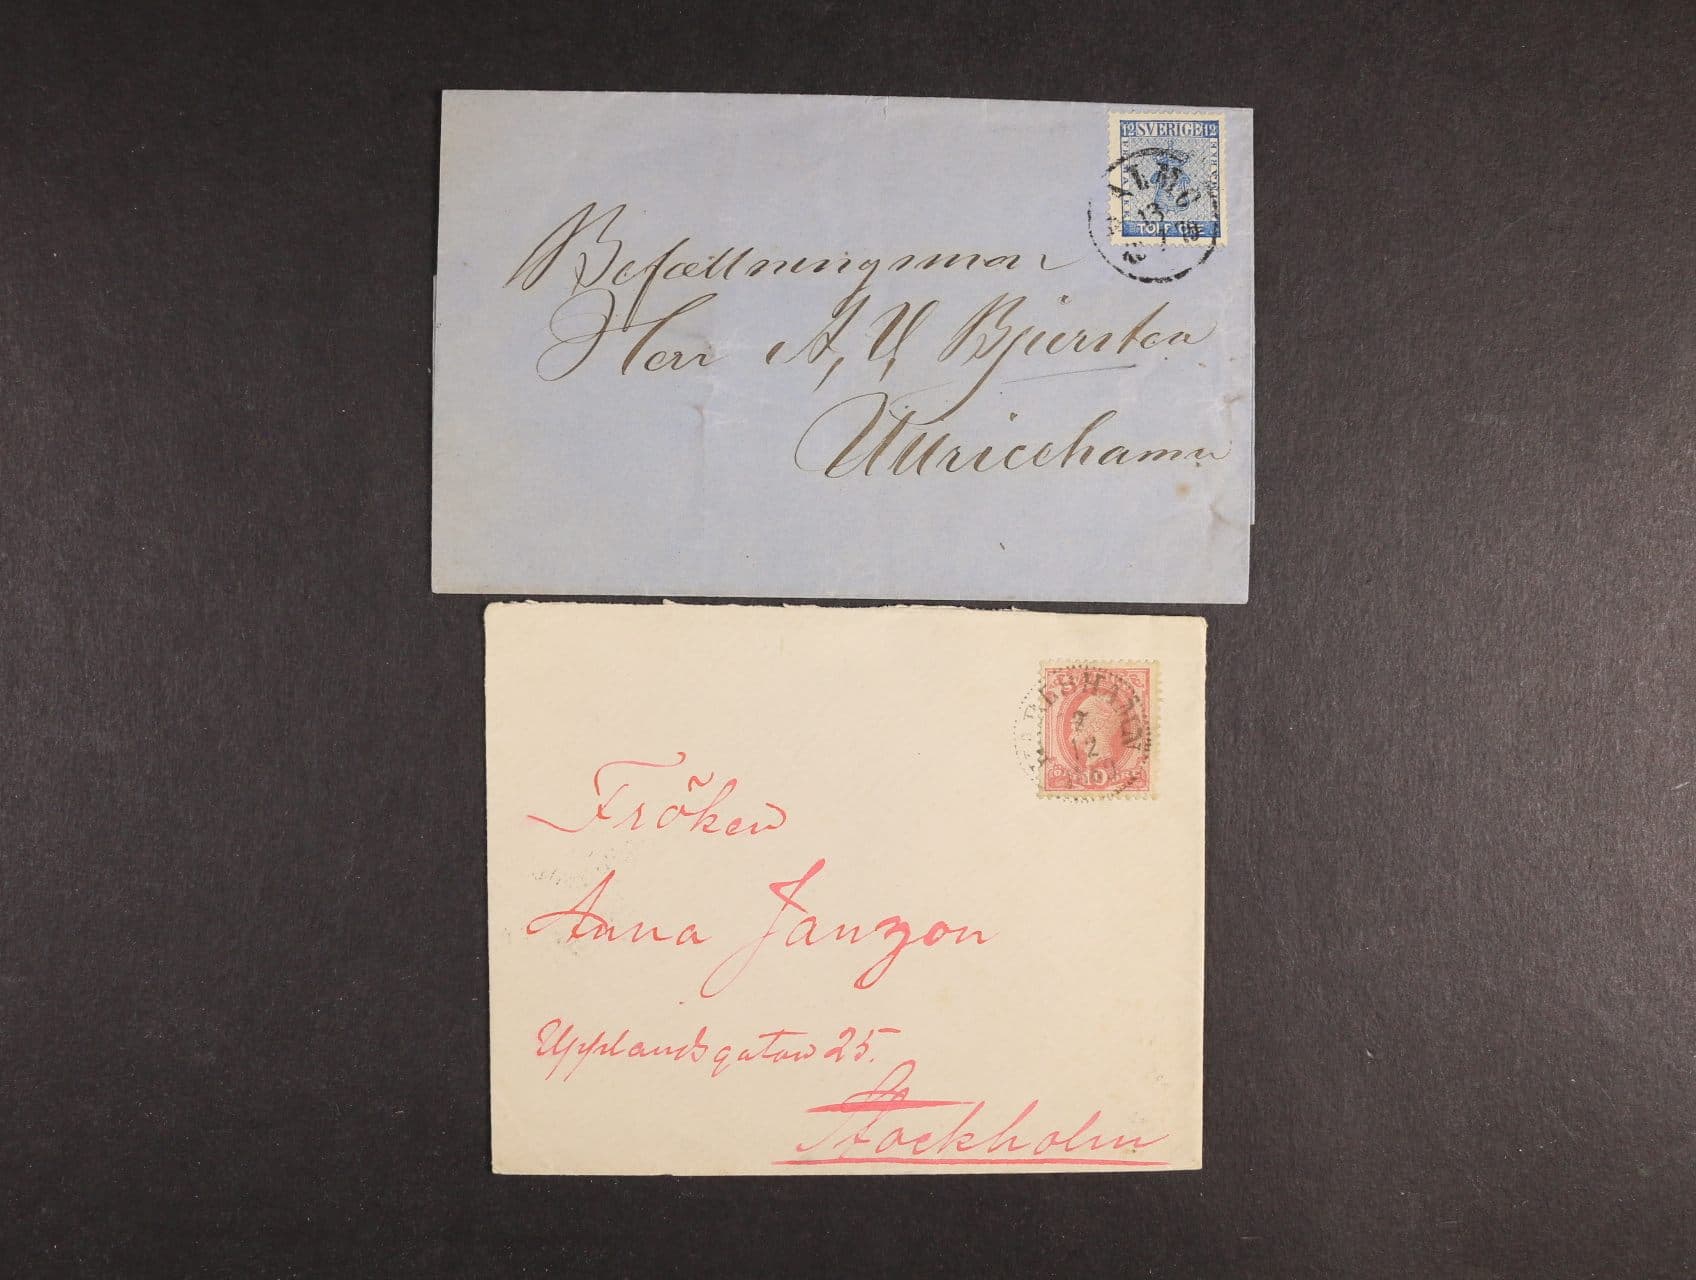 12 SVERIGE 12
TOLF ÖRE
MALMÖ
13
7
Befallningsman
Herr A, U, Bjursten
Ullricehamn
10 ÖRE
12
Fröken
Anna Janzon
Upplandsgatan 25.
Stockholm